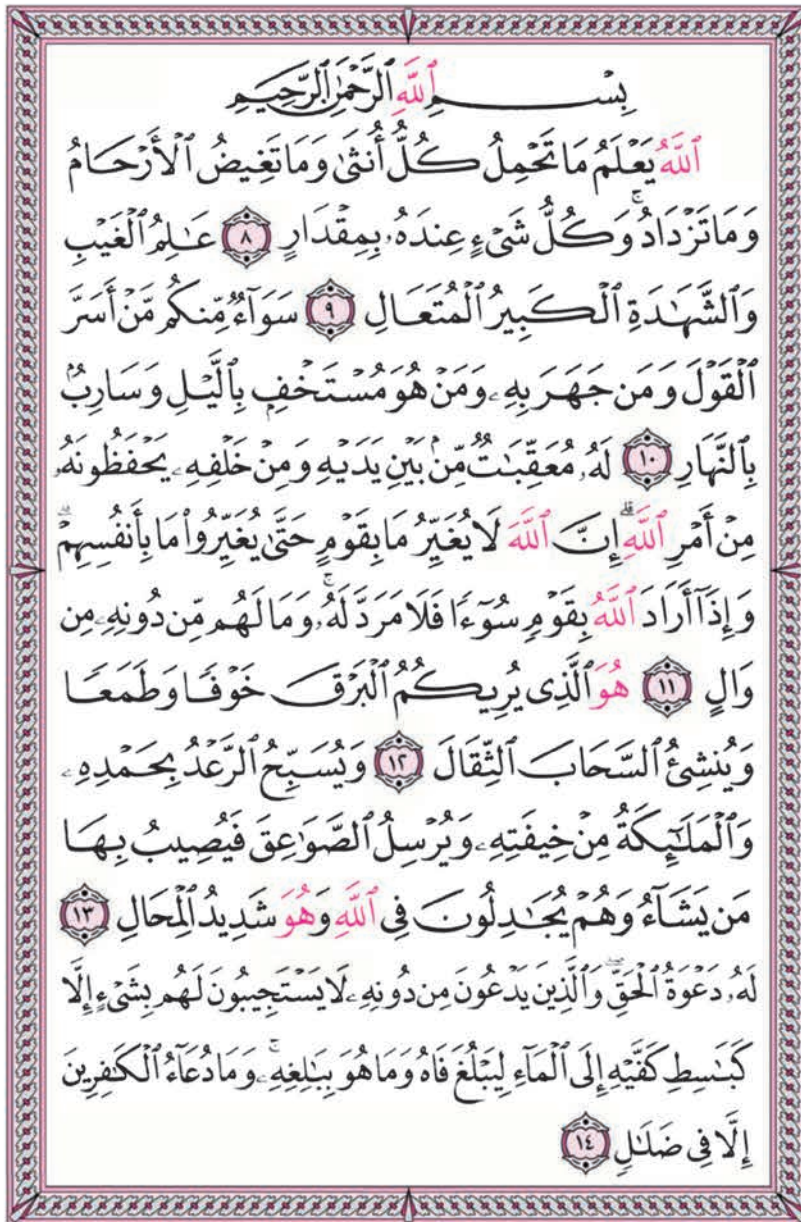 بِسْمِ ٱللَّهِ ٱلرَّحْمَٰنِ ٱلرَّحِيمِ
ٱللَّهُ يَعْلَمُ مَا تَحْمِلُ كُلُّ أُنثَىٰ وَمَا تَغِيضُ ٱلْأَرْحَامُ
وَمَا تَزْدَادُ ۚ وَكُلُّ شَىْءٍ عِندَهُۥ بِمِقْدَارٍ ٨ عَٰلِمُ ٱلْغَيْبِ
وَٱلشَّهَٰدَةِ ٱلْكَبِيرُ ٱلْمُتَعَالِ ٩ سَوَآءٌ مِّنكُم مَّنْ أَسَرَّ
ٱلْقَوْلَ وَمَن جَهَرَ بِهِۦ وَمَنْ هُوَ مُسْتَخْفٍۭ بِٱلَّيْلِ وَسَارِبٌۢ
بِٱلنَّهَارِ ١٠ لَهُۥ مُعَقِّبَٰتٌ مِّنۢ بَيْنِ يَدَيْهِ وَمِنْ خَلْفِهِۦ يَحْفَظُونَهُۥ
مِنْ أَمْرِ ٱللَّهِ ۗ إِنَّ ٱللَّهَ لَا يُغَيِّرُ مَا بِقَوْمٍ حَتَّىٰ يُغَيِّرُوا۟ مَا بِأَنفُسِهِمْ ۗ
وَإِذَآ أَرَادَ ٱللَّهُ بِقَوْمٍ سُوٓءًا فَلَا مَرَدَّ لَهُۥ ۚ وَمَا لَهُم مِّن دُونِهِۦ مِن
وَالٍ ١١ هُوَ ٱلَّذِى يُرِيكُمُ ٱلْبَرْقَ خَوْفًا وَطَمَعًا
وَيُنشِئُ ٱلسَّحَابَ ٱلثِّقَالَ ١٢ وَيُسَبِّحُ ٱلرَّعْدُ بِحَمْدِهِۦ
وَٱلْمَلَٰٓئِكَةُ مِنْ خِيفَتِهِۦ وَيُرْسِلُ ٱلصَّوَٰعِقَ فَيُصِيبُ بِهَا
مَن يَشَآءُ وَهُمْ يُجَٰدِلُونَ فِى ٱللَّهِ وَهُوَ شَدِيدُ ٱلْمِحَالِ ١٣
لَهُۥ دَعْوَةُ ٱلْحَقِّ ۖ وَٱلَّذِينَ يَدْعُونَ مِن دُونِهِۦ لَا يَسْتَجِيبُونَ لَهُم بِشَىْءٍ إِلَّا
كَبَٰسِطِ كَفَّيْهِ إِلَى ٱلْمَآءِ لِيَبْلُغَ فَاهُ وَمَا هُوَ بِبَٰلِغِهِۦ ۚ وَمَا دُعَآءُ ٱلْكَٰفِرِينَ
إِلَّا فِى ضَلَٰلٍ ١٤